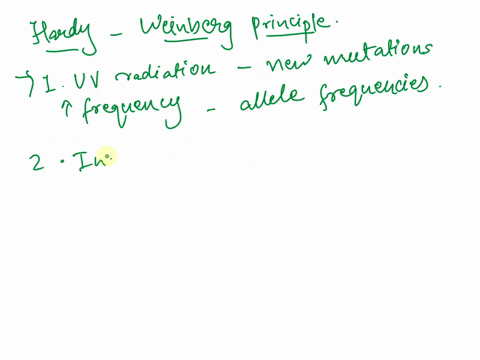 Hardy - Weinberg Principle.
→ 1. UV radiation - new mutations
↑ frequency - allele frequencies.
2. In